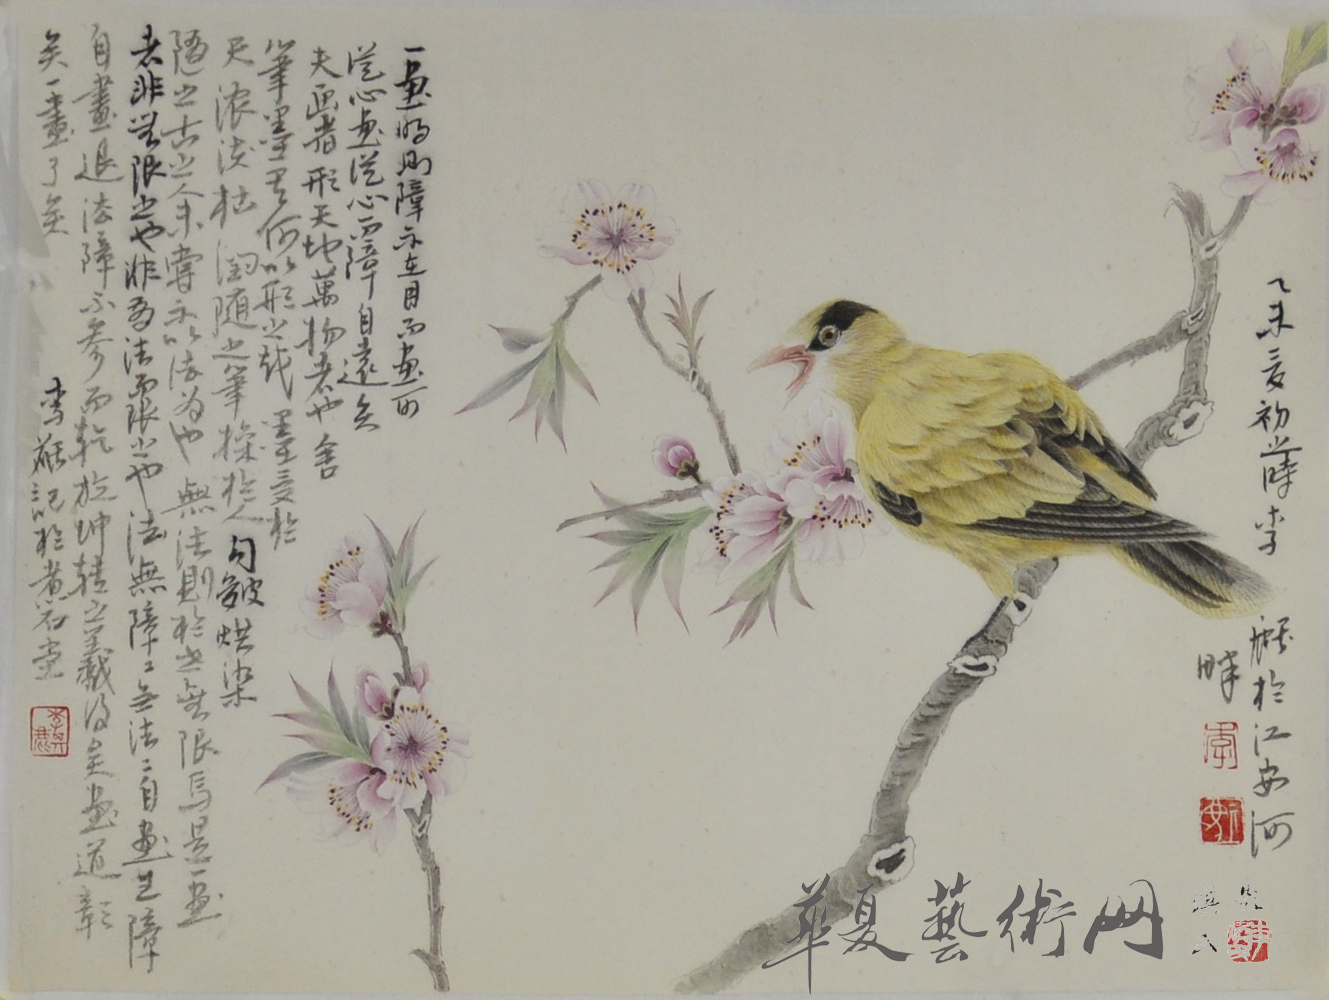 一画明则障不在目而画可
從心画從心而障自遠矣
夫画者形天地萬物者也舍
筆墨其何以形之哉墨受於
天浓淡枯润随之筆操於人勾皴烘染
随之古之人未嘗不以法為也無法則於世無限焉是一画
者非無限之也非有法而限之也法無障二無法二自画生障
自畫退法障不参而乾旋坤转之義得矣画道彰
矣一畫了矣
李 記於煮石堂
乙未夏初之時李
於江安河
畔
華夏藝術网